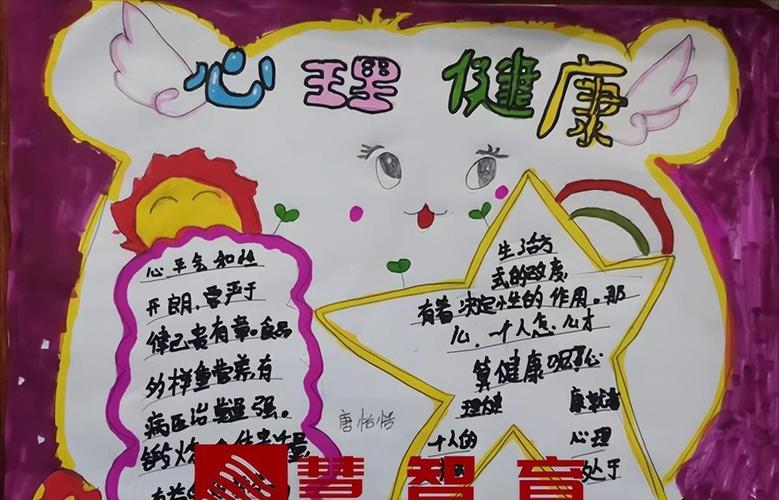 心理健康
心平气和性
开朗,要严于
律己贵有章。食品
多样重营养,有
病医治
强。
生活方
式的改变,
有着决定性的作用。那
么,一个人怎么才
算健康呢?心
理健
康
一个人的
心理
处于
唐怡恬
慧智育